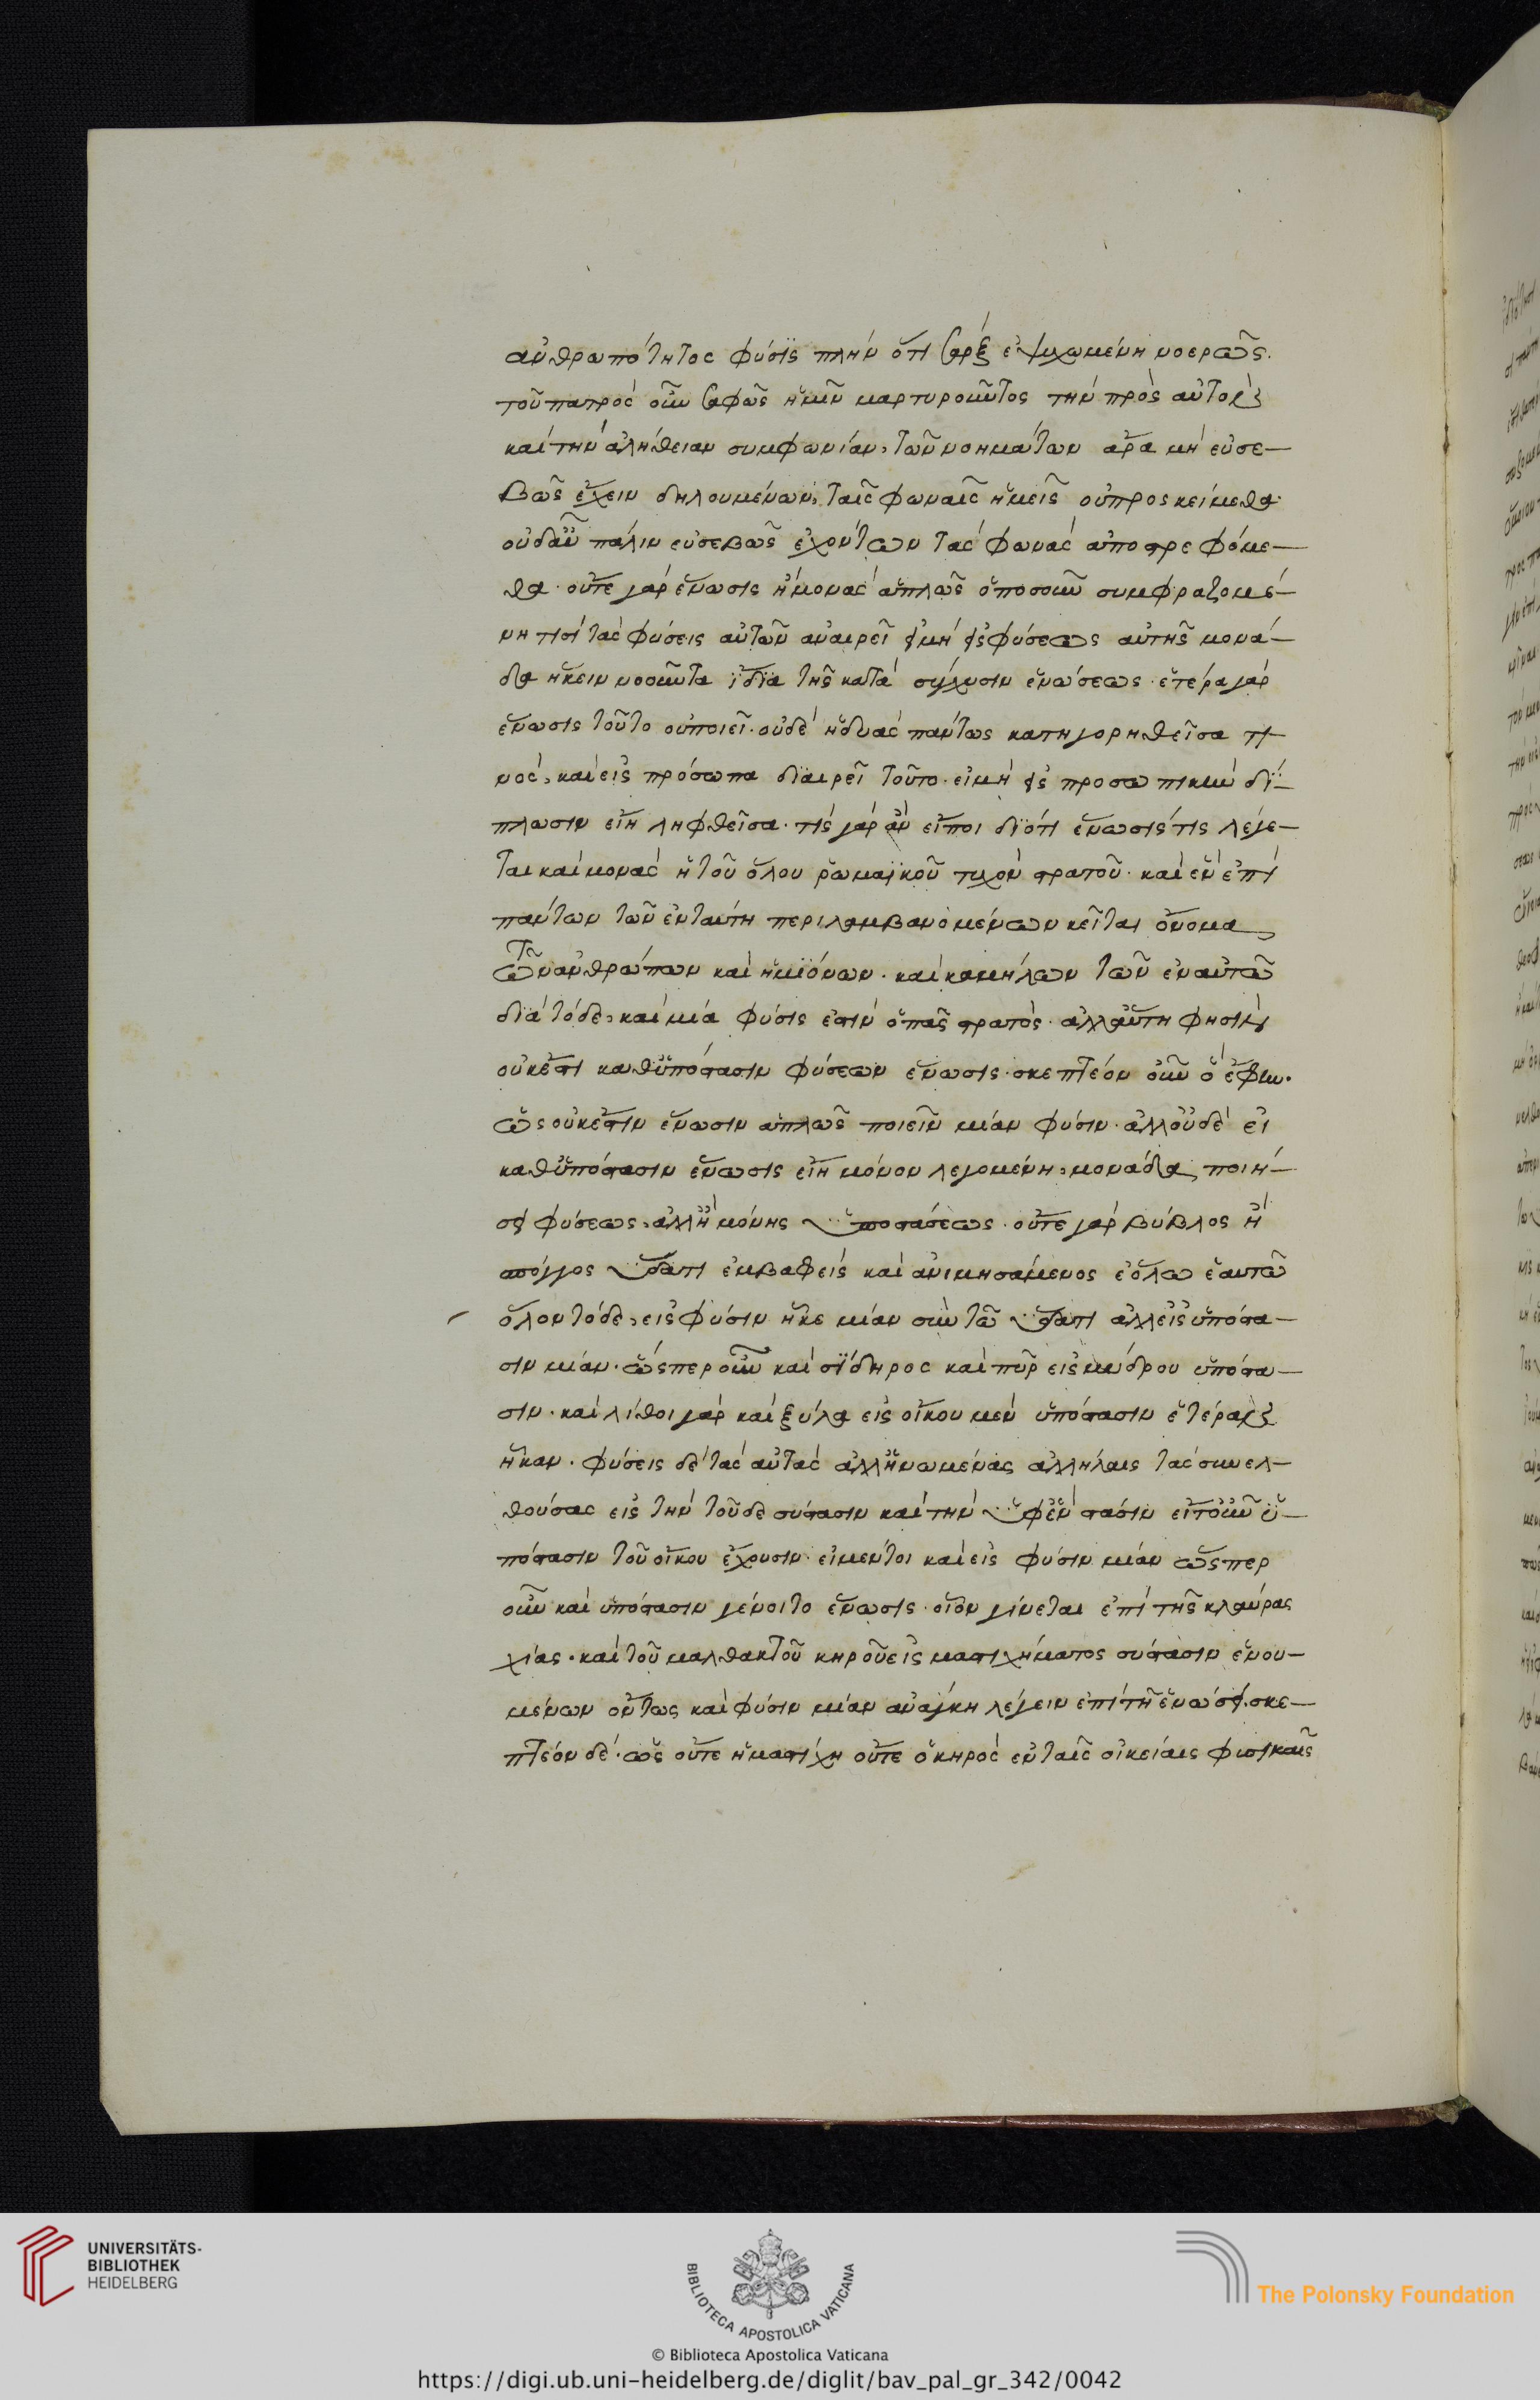 ἀνθρωπότητος φύσϊς πλὴν ὅτι σὰρξ ἐψυχωμένη νοερῶς.
τοῦ πατρὸς οὖν σαφῶς ἡμῖν μαρτυροῦντος τὴν πρὸς αὐτοὺς
καὶ τὴν ἀλήθειαν συμφωνίαν, τῶν νοημάτων ἆρα μὴ εὐσε-
βῶς ἔχειν δηλουμένων, ταῖς φωναῖς ἡμεῖς οὐ προσκείμεθα·
οὐδ' αὖ πάλιν εὐσεβῶς ἐχόντων τὰς φωνὰς ἀποστρεφόμε-
θα· οὔτε γὰρ ἕνωσις ἢ μονὰς ἁπλῶς ὁποσοῦν συμφραζομέ-
νη τισὶ τὰς φύσεις αὐτῶν ἀναιρεῖ εἰ μὴ εἰς φύσεως αὐτῆς μονά-
δα ἥκειν νοοῦντα ἴδϊα τῆς κατὰ σύγχυσιν ἑνώσεως· ἑτέρα γὰρ
ἕνωσις τοῦτο οὐ ποιεῖ· οὐδὲ ἡ δυὰς πάντως κατηγορηθεῖσα τι-
νος, καὶ εἰς πρόσωπα δϊαιρεῖ τοῦτο· εἰ μὴ εἰς προσωπικὴν δί-
πλωσιν εἴη ληφθεῖσα· τίς γὰρ ἂν εἴποι δϊότι ἕνωσίς τις λέγε-
ται καὶ μονὰς ἡ τοῦ ὅλου ῥωμαϊκοῦ τυχὸν στρατοῦ· καὶ ἓν ἐπὶ
πάντων τῶν ἐνταύτη περιλαμβανομένων κεῖται ὄνομα
τῶν ἀνθρώπων καὶ ἡμϊόνων· καὶ καμήλων τῶν ἐν αὐτῶ
δϊὰ τόδε, καὶ μία φύσις ἐστὶν ὁ πᾶς στρατός· ἀλλ' αὕτη φησὶν
οὐκ ἔστι καθ' ὑπόστασιν φύσεων ἕνωσις· σκεπτέον οὖν ὃ ἔφην·
ὡς οὐκ ἔστιν ἕνωσιν ἁπλῶς ποιεῖν μίαν φύσιν· ἀλλ' οὐδὲ εἰ
καθ' ὑπόστασιν ἕνωσις εἴη μόνον λεγομένη, μονάδα ποιή-
σει φύσεως, ἀλλ' ἢ μόνης ὑποστάσεως· οὔτε γὰρ βύβλος ἢ
σπόγγος ὕδατι ἐμβαφεὶς καὶ ἀνιμησάμενος ἐν ὅλω ἑαυτῶ
ὅλον τόδε, εἰς φύσιν ἧκε μίαν σὺν τῶ ὕδατι ἀλλ' εἰς ὑπόστα-
σιν μίαν· ὥσπερ οὖν καὶ σΐδηρος καὶ πῦρ εἰς μύδρου ὑπόστα-
σιν· καὶ λίθοι γὰρ καὶ ξύλα εἰς οἴκου μὲν ὑπόστασιν ἑτέραν
ἧκαν· φύσεις δὲ τὰς αὐτὰς ἀλλ' ἡνωμένας ἀλλήλαις τὰς συνελ-
θούσας εἰς τὴν τοῦδε σύστασιν καὶ τὴν ὑφ' ἓν στάσιν εἴτ' οὖν ὑ-
πόστασιν τοῦ οἴκου ἔχουσιν· εἰ μέντοι καὶ εἰς φύσιν μίαν ὥσπερ
οὖν καὶ ὑπόστασιν γένοιτο ἕνωσις· οἷον γίνεται ἐπὶ τῆς κλαύρας
χίας· καὶ τοῦ μαλθακτοῦ κηροῦ εἰς μαστιχήματος σύστασιν ἑνου-
μένων οὕτως καὶ φύσιν μίαν ἀνάγκη λέγειν ἐπὶ τῇ ἑνώσει. σκε-
πτέον δὲ· ὡς οὔτε ἡ μαστίχη οὔτε ὁ κηρὸς ἐν ταῖς οἰκείαις φυσικαῖς
UNIVERSITÄTS-
BIBLIOTHEK
HEIDELBERG
BIBLIOTECA APOSTOLICA VATICANA
The Polonsky Foundation
© Biblioteca Apostolica Vaticana
https://digi.ub.uni-heidelberg.de/diglit/bav_pal_gr_342/0042